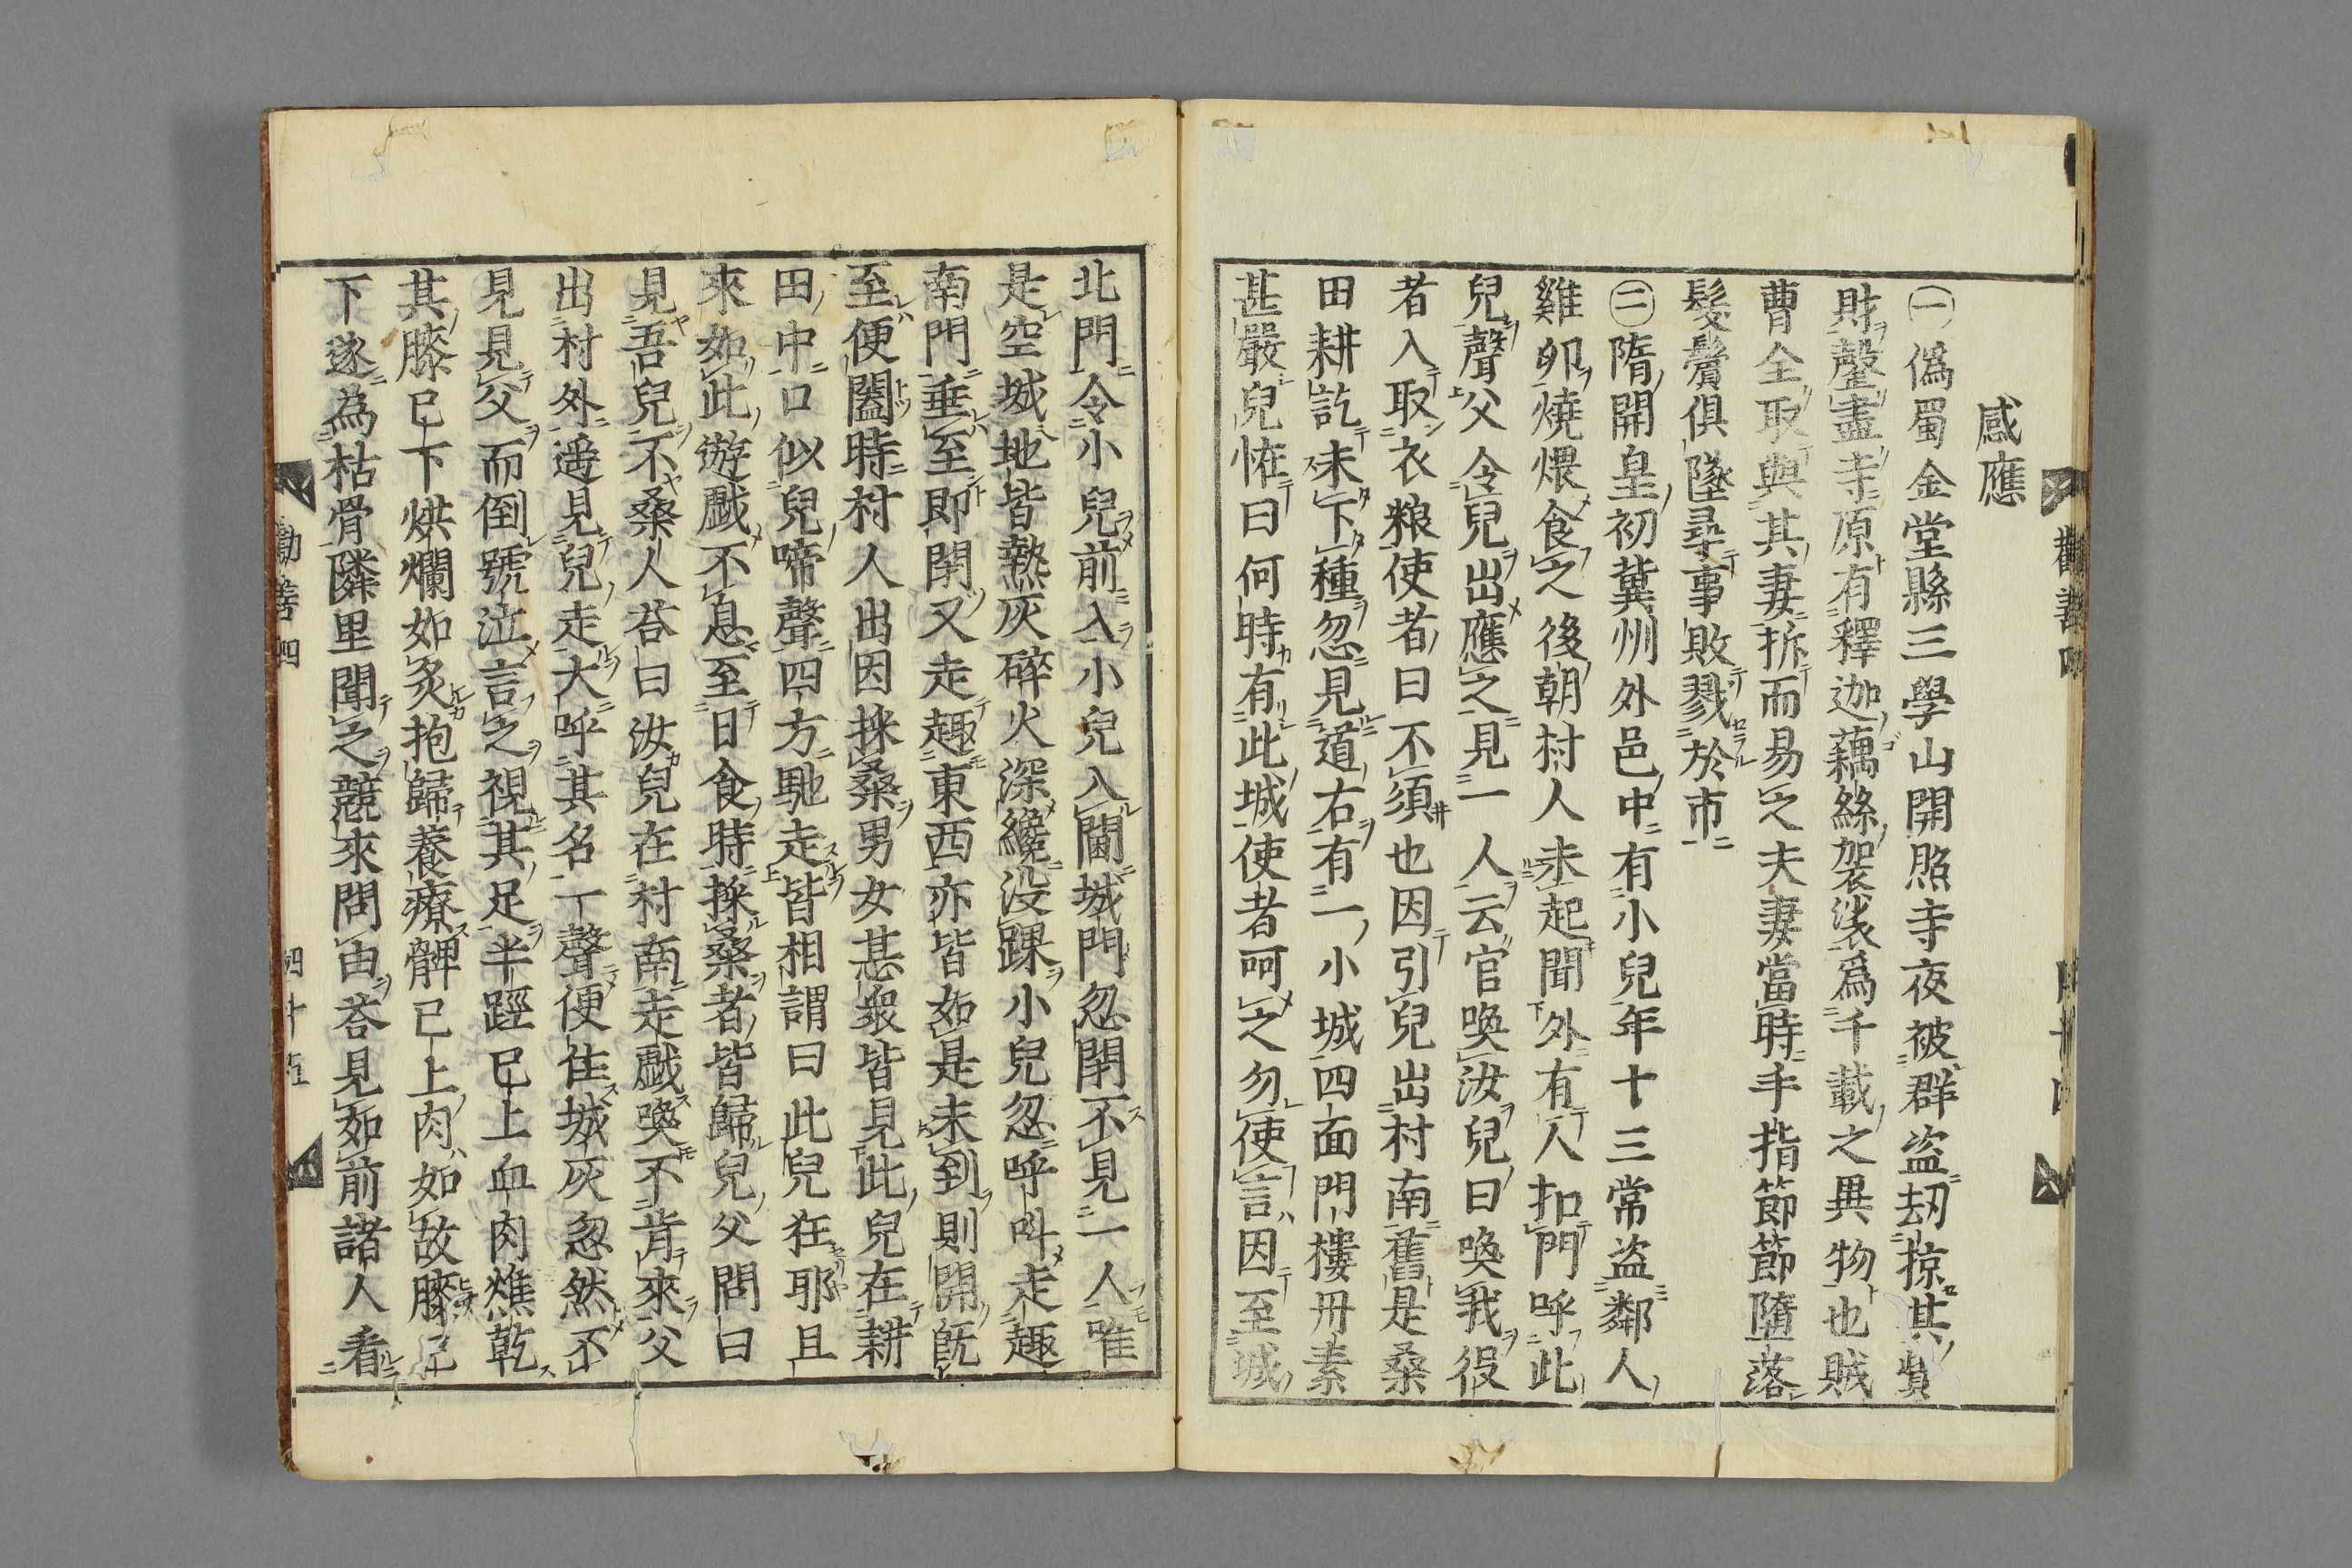 感應
㊀偽蜀金堂縣三學山開照寺夜被群盜刧掠其貲
財罄盡寺原有釋迦藕絲袈裟爲千載之異物也賊
曹全取與其妻拆而易之夫妻當時手指節節墮落
髮鬢俱墜尋事敗戮於市
㊁隋開皇初冀州外邑中有小兒年十三常盜鄰人
雞卵燒煨食之後朝村人未起聞外有人扣門呼此
兒聲父令兒出應之見一人云官喚汝兒曰喚我役
者入取衣粮使者曰不須也因引兒出村南舊是桑
田耕訖未下種忽見道右有一小城四面門樓丹素
甚嚴兒恠曰何時有此城使者呵之勿使言因至城
北門令小兒前入小兒入閫城門忽閉不見一人唯
是空城地皆熱灰碎火深纔没踝小兒忽呼叫走趣
南門垂至即閉又走趣東西亦皆如是未到則開既
至便闔時村人出因採桑男女甚衆皆見此兒在耕
田中口似兒啼聲四方馳走皆相謂曰此兒狂耶且
來如此遊戯不息至日食時採桑者皆歸兒父問曰
見吾兒不桑人荅曰汝兒在村南走戯喚不肯來父
出村外遥見兒走大呼其名一聲便住城灰忽然不
見見父而倒號泣言之視其足半踁已上血肉燋乾
其膝已下烘爛如炙抱歸養療髀已上肉如故膝已
下遂為枯骨隣里聞之競來問由荅見如前諸人看
勸善四
四十五